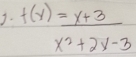 2. f(x) = x+3
x²+2x-3